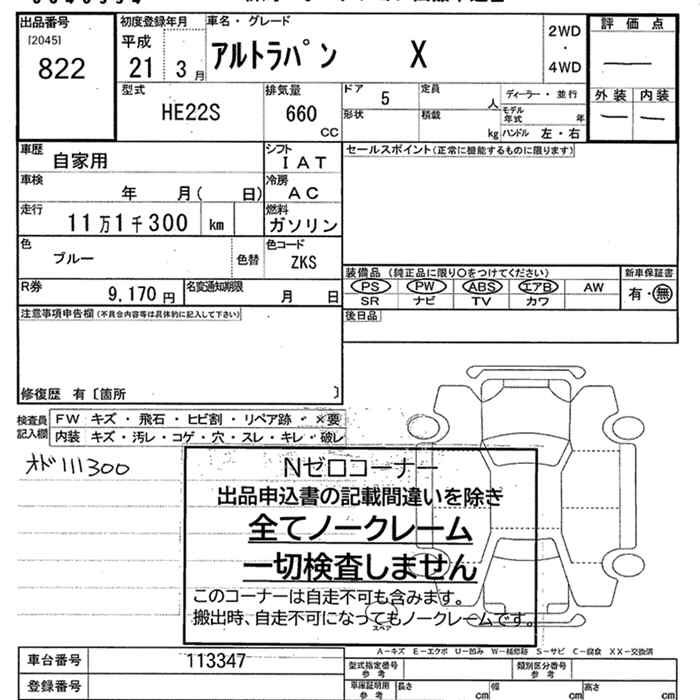 出品番号
[2045]
822
初度登録年月
平成
21 3月
車名・グレード
アルトラパン X
2WD
・
4WD
評価点
外装 内装
型式
HE22S
排気量
660
CC
ドア
5
形状
定員
人
積載
kg
ディーラー・並行
モデル年式 年
ハンドル 左・右
車歴
自家用
シフト
IAT
セールスポイント(正常に機能するものに限ります)
車検
年 月( 日)
冷房
AC
走行
11万1千300 km
燃料
ガソリン
色
ブルー
色替
色コード
ZKS
装備品(純正品に限り○をつけてください)
新車保証書
PS PW ABS エアB AW
SR ナビ TV カワ
有・無
R券
9,170円
名変通知期限
月 日
後日品
注意事項申告欄(不具合内容等は具体的に記入して下さい)
修復歴 有〔箇所 〕
検査員記入欄
FW キズ・飛石・ヒビ割・リペア跡・×要
内装 キズ・汚レ・コゲ・穴・スレ・キレ・破レ
オド111300
Nゼロコーナー
出品申込書の記載間違いを除き
全てノークレーム
一切検査しません
このコーナーは自走不可も含みます。
搬出時、自走不可になってもノークレームです。
スペア
A-キズ E-エクボ U-凹み W-補修跡 S-サビ C-腐食 XX-交換済
車台番号
113347
登録番号
型式指定番号
参考
類別区分番号
参考
車庫証明用
参考
長さ cm
幅 cm
高さ cm